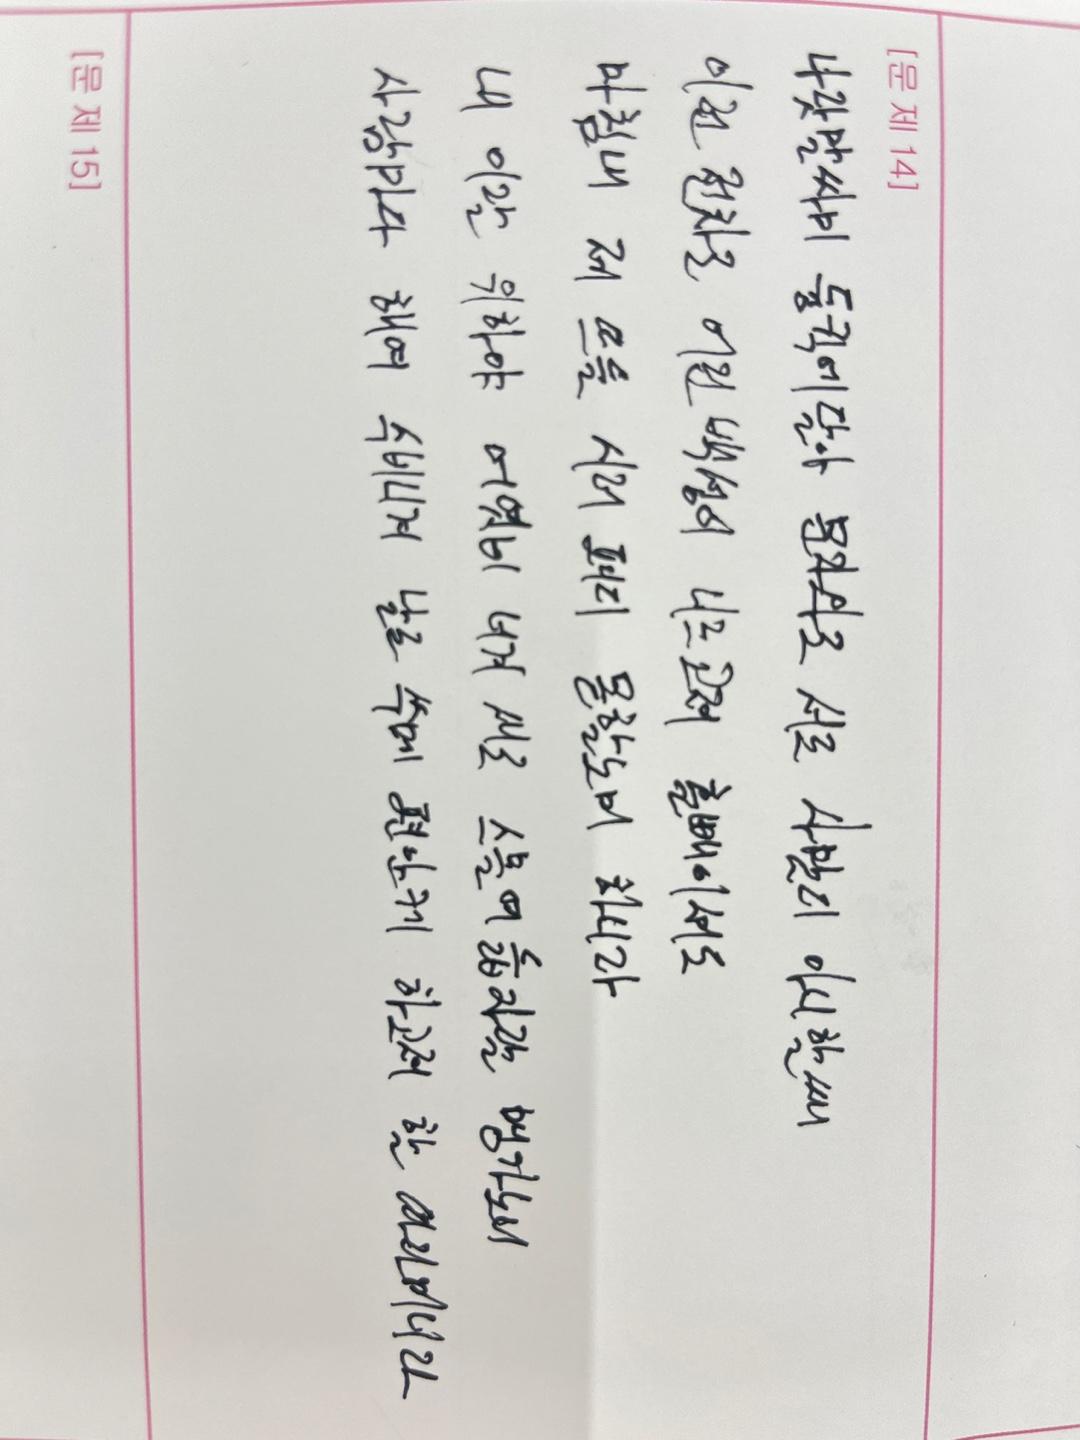 [문제 14]
나랏말싸미 듕귁에달아 문자와로 서르 사맛디 아니할쎄
이런 전차로 어린 백성이 니르고져 홀빼이셔도
마침내 제 뜨들 시러 펴디 몯할노미 하니라
내 이랄 위하야 어엿비 너겨 새로 스믈여듧자랄 맹가노니
사람마다 해여 수비니겨 날로 쑤메 편안케 하고져 할 따라미니라
[문제 15]